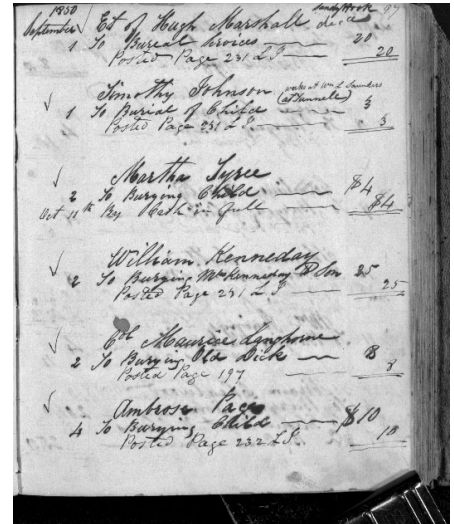 1850 Sandy Hook 97
September Est of Hugh Marshall decd
1 To Burial Services 20
Posted Page 231 L I 20
Timothy Johnson works at Wm L Saunders
(at Tunnele)
1 To Burial of Child 3
Posted Page 231 L I 3
Martha Tyree
2 To Burying Child $4
Oct 11th By Cash in full $4
William Kenneday
2 To Burying Mrs Kenneday & Son 25
Posted Page 231 L I 25
Col Maurice Langhorne
2 To Burying Old Dick 8
Posted Page 197 8
Ambrose Page
4 To Burying Child $10
Posted Page 232 L I 10